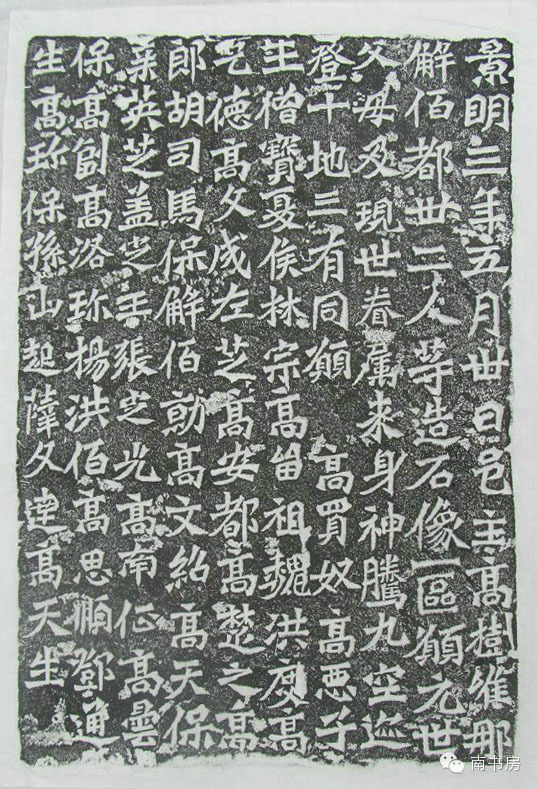 景明三年五月卅日邑主高樹維那
解佰都卅二人等造石像一區願元世
父母及現世眷屬來身神騰九空迹
登十地三有同願 高買奴 高惡子
王僧寶夏侯林宗高留祖魏洪度高
乞德高文成左芝高安都高楚之高
郎胡司馬保解佰勍高文紹高天保
英芝盖定王張定光高南征高曇
保高副高洛珎楊洪佰高思順鄧通
生高珎保孫山起薛文達高天生
南书房